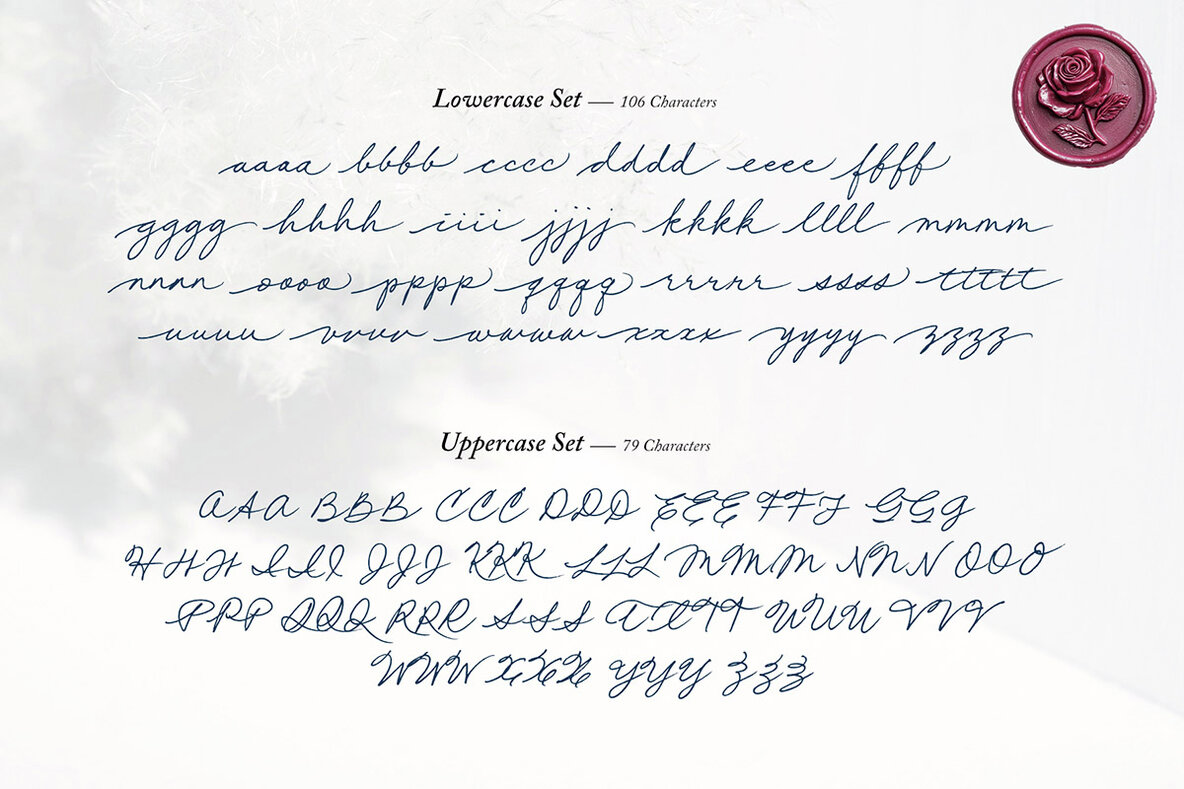 Lowercase Set — 106 Characters
aaaa bbbb cccc dddd eeee ffff
gggg hhhh iiii jjjj kkkk llll mmmm
nnnn oooo pppp qqqq rrrrr ssss ttttt
uuuu vvvv wwww xxxx yyyy zzzz
Uppercase Set — 79 Characters
AAA BBB CCC DDD EEE FFF GGG
HHH III JJJ KKK LLL MMM NNN OOO
PPP QQQ RRR SSS TTTT UUU VVV
WWW XXX YYY ZZZ